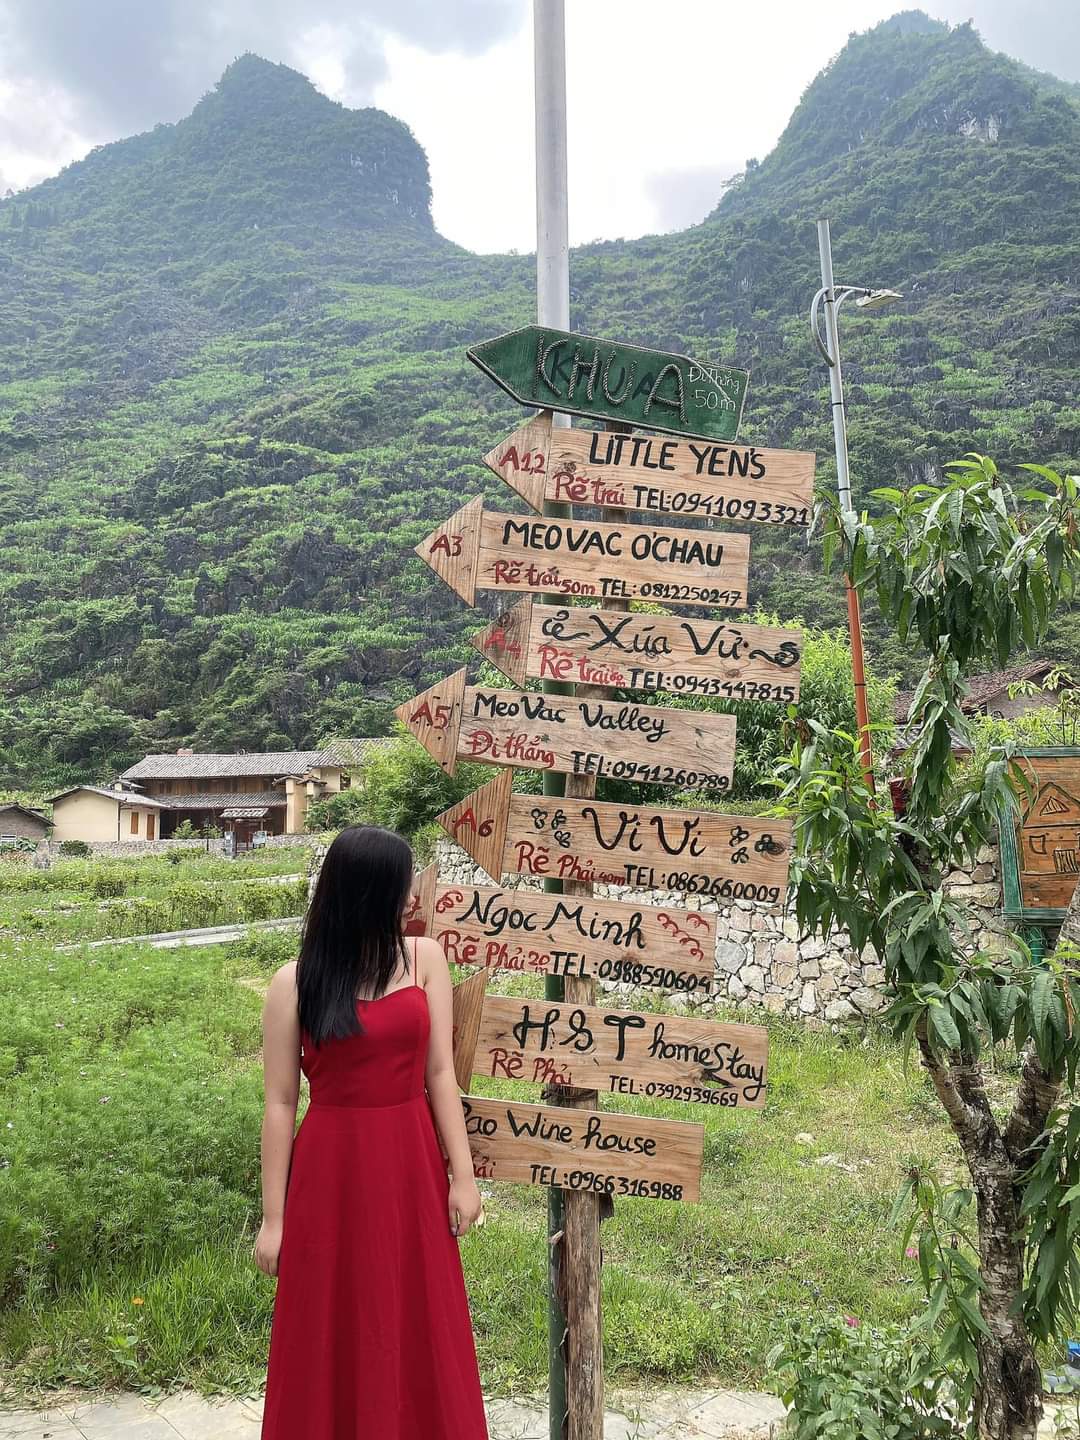 KHUA Đi thẳng
50m
A1,2 LITTLE YEN'S
Rẽ trái TEL:0941093321
A3 MEOVAC O'CHAU
Rẽ trái 50m TEL:0812250247
A4 Xúa Vừ
Rẽ trái TEL:0943447815
A5 MeoVac Valley
Đi thẳng TEL:0941260789
A6 Vi Vi
Rẽ Phải 40m TEL:0862660009
Ngọc Minh
Rẽ Phải 20m TEL:0988590604
H&T homeStay
Rẽ Phải TEL:0392939669
Pao Wine house
TEL:0966316988